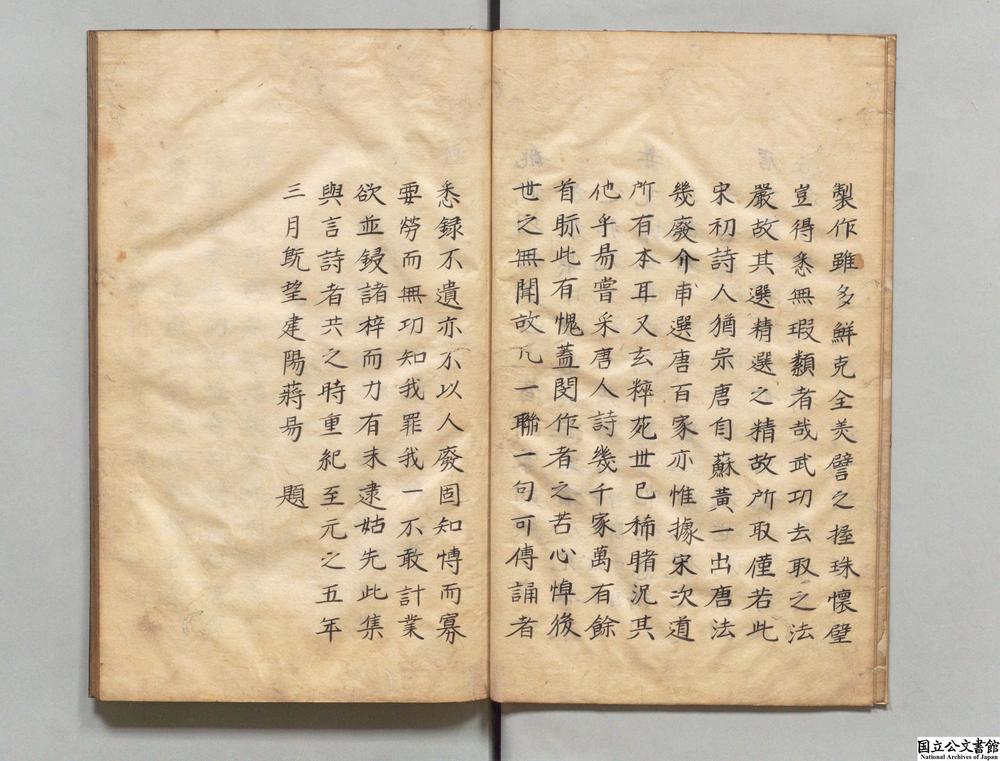 製作雖多鮮克全美譬之握珠懷璧
豈得悉無瑕纇者哉武功去取之法
嚴故其選精選之精故所取僅若此
宋初詩人猶宗唐自蘇黃一出唐法
幾廢介甫選唐百家亦惟據宋次道
所有本耳又玄粹苑世已稀睹況其
他乎昜嘗采唐人詩幾千家萬有餘
首眎此有愧蓋閔作者之苦心悼後
世之無聞故凡一聯一句可傳誦者
悉録不遺亦不以人廢固知博而寡
要勞而無功知我罪我一不敢計業
欲並鋟諸梓而力有未逮姑先此集
與言詩者共之時重紀至元之五年
三月旣望建陽蔣昜 題
国立公文書館
National Archives of Japan